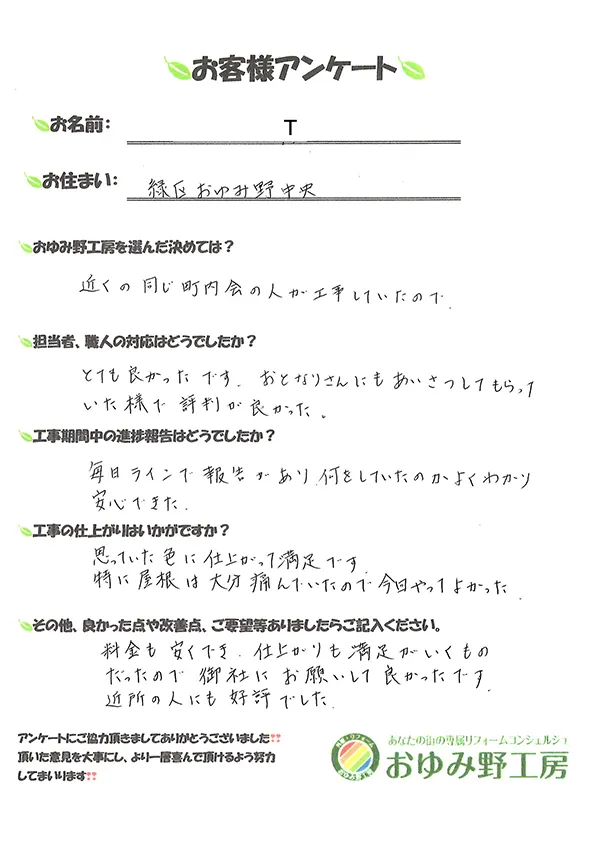 お客様アンケート
お名前： T
お住まい： 緑区おゆみ野中央
おゆみ野工房を選んだ決めては？
近くの同じ町内会の人が工事していたので.
担当者、職人の対応はどうでしたか？
とても良かったです. おとなりさんにもあいさつしてもらって
いた様で評判が良かった。
工事期間中の進捗報告はどうでしたか？
毎日ラインで報告があり.何をしていたのかよくわかり
安心できた.
工事の仕上がりはいかがですか？
思っていた色に仕上がって満足です.
特に屋根は大分痛んでいたので今回やってよかった.
その他、良かった点や改善点、ご要望等ありましたらご記入ください。
料金も安くでき. 仕上がりも満足がいくもの
だったので御社にお願いして良かったです.
近所の人にも好評でした.
アンケートにご協力頂きましてありがとうございました!!
頂いた意見を大事にし、より一層喜んで頂けるよう努力
してまいります!!
外装・リフォーム
おゆみ野工房
あなたの街の専属リフォームコンシェルジュ
おゆみ野工房